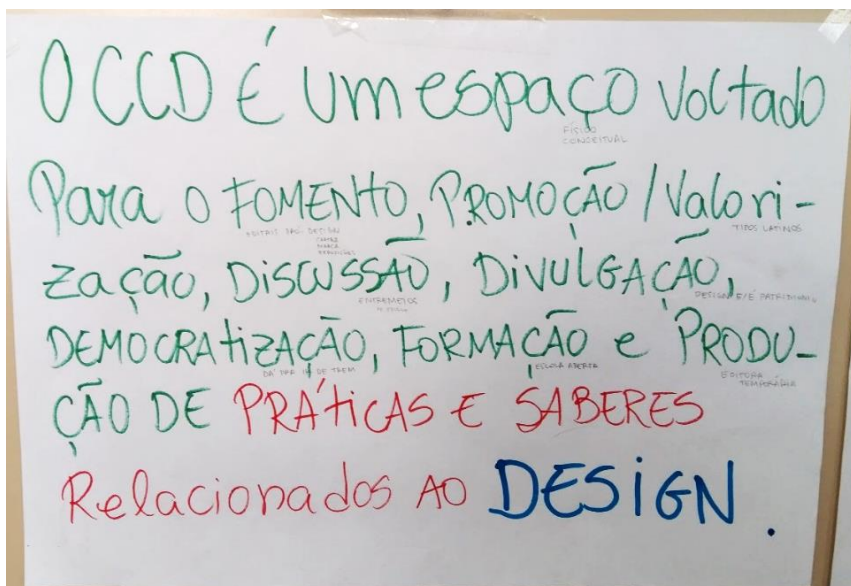 O CCD É um espaço voltado
FÍSICO
CONCEITUAL
Para o FOMENTO, PROMOÇÃO / Valori-
EDITAIS DAC DESIGN
TIPOS LATINOS
zação, DISCUSSÃO, DIVULGAÇÃO,
DESIGN E/É
DEMOCRATIZAÇÃO, FORMAÇÃO e PRODU-
ESCOLA ABERTA
EDITORA
TEMPORÁRIA
ÇÃO DE PRÁTICAS E SABERES
Relacionados AO DESIGN.